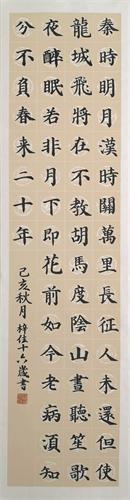 秦時明月漢時關萬里長征人未還但使
龍城飛將在不教胡馬度陰山晝聽笙歌
夜醉眠若非月下即花前如今老病湏知
分不負春來二十年
己亥秋月梓佳十六歲書